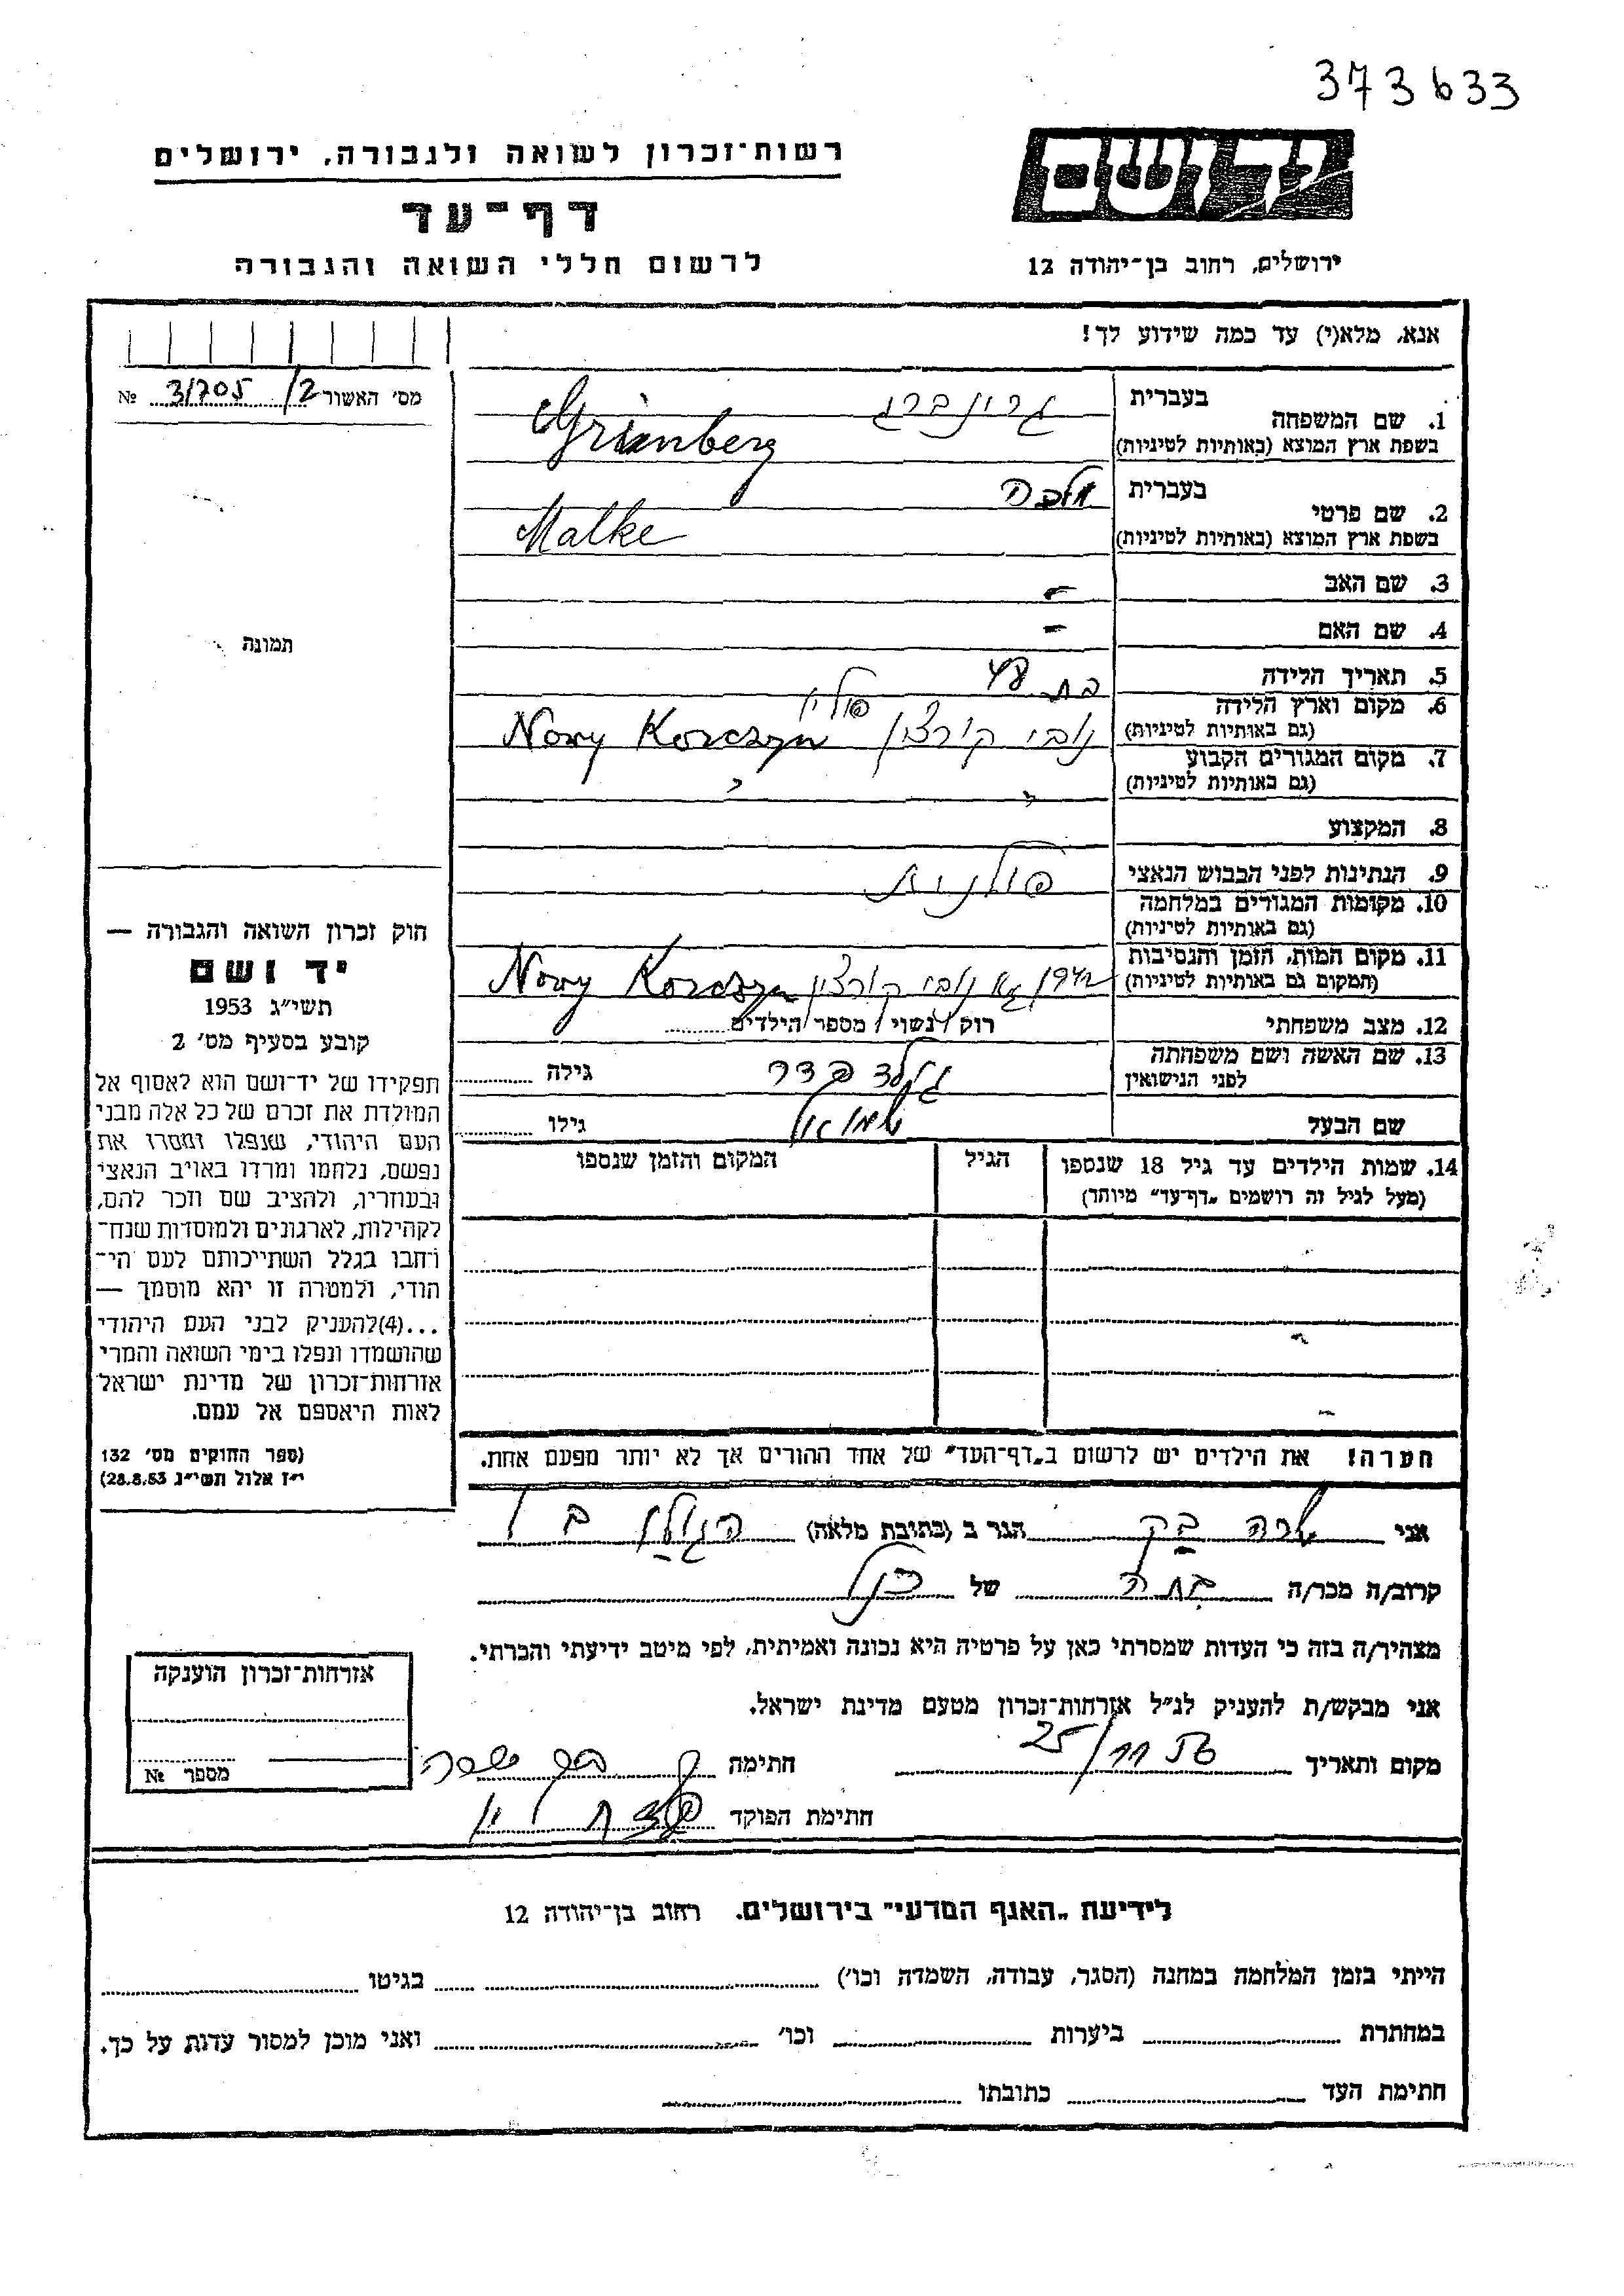 373633
רשות־זכרון לשואה ולגבורה, ירושלים
יד ושם
דף־עד
לרשום חללי השואה והגבורה
ירושלים, רחוב בן־יהודה 12
אנא, מלא(י) עד כמה שידוע לך!
מס׳ האשור 3/705/2 №
1. שם המשפחה
בעברית גרונברג
בשפת ארץ המוצא (באותיות לטיניות) Grinberg
2. שם פרטי
בעברית מלכה
בשפת ארץ המוצא (באותיות לטיניות) Malke
3. שם האב -
4. שם האם -
תמונה
5. תאריך הלידה בת 48
6. מקום וארץ הלידה פולין
(גם באותיות לטיניות) נובי קורצין Nowy Korczyn
7. מקום המגורים הקבוע
(גם באותיות לטיניות) " "
8. המקצוע
9. הנתינות לפני הכבוש הנאצי פולנית
10. מקומות המגורים במלחמה
(גם באותיות לטיניות)
11. מקום המות, הזמן והנסיבות
(המקום גם באותיות לטיניות) 1942 נובי קורצין Nowy Korczyn
12. מצב משפחתי רוק / נשוי / מספר הילדים
13. שם האשה ושם משפחתה
לפני הנישואין גילה
שם הבעל שמואל גילו
14. שמות הילדים עד גיל 18 שנספו הגיל המקום והזמן שנספו
(מעל לגיל זה רושמים „דף־עד” מיוחד)
חוק זכרון השואה והגבורה —
יד ושם
תשי״ג 1953
קובע בסעיף מס׳ 2
תפקידו של יד־ושם הוא לאסוף אל
המולדת את זכרם של כל אלה מבני
העם היהודי, שנפלו ומסרו את
נפשם, נלחמו ומרדו באויב הנאצי
ובעוזריו, ולהציב שם וזכר להם,
לקהילות, לארגונים ולמוסדות שנח־
רבו בגלל השתייכותם לעם הי־
הודי, ולמטרה זו יהא מוסמך —
...(4)להעניק לבני העם היהודי
שהושמדו ונפלו בימי השואה והמרי
אזרחות־זכרון של מדינת ישראל
לאות היאספם אל עמם.
(ספר החוקים מס׳ 132
י״ז אלול תשי״ג 28.8.53)
הערה! את הילדים יש לרשום ב„דף־העד” של אחד ההורים אך לא יותר מפעם אחת.
אני שרה בק הגר ב (כתובת מלאה)
קרוב/ה מכר/ה בתה של הנ״ל
מצהיר/ה בזה כי העדות שמסרתי כאן על פרטיה היא נכונה ואמיתית, לפי מיטב ידיעתי והכרתי.
אני מבקש/ת להעניק לנ״ל אזרחות־זכרון מטעם מדינת ישראל.
מקום ותאריך 25/11 חתימה בק שרה
חתימת הפוקד
אזרחות־זכרון הוענקה
מספר №
לידיעת „האגף המדעי” בירושלים, רחוב בן־יהודה 12
הייתי בזמן המלחמה במחנה (הסגר, עבודה, השמדה וכו׳) בגיטו
במחתרת ביערות וכו׳ ואני מוכן למסור עדות על כך.
חתימת העד כתובתו